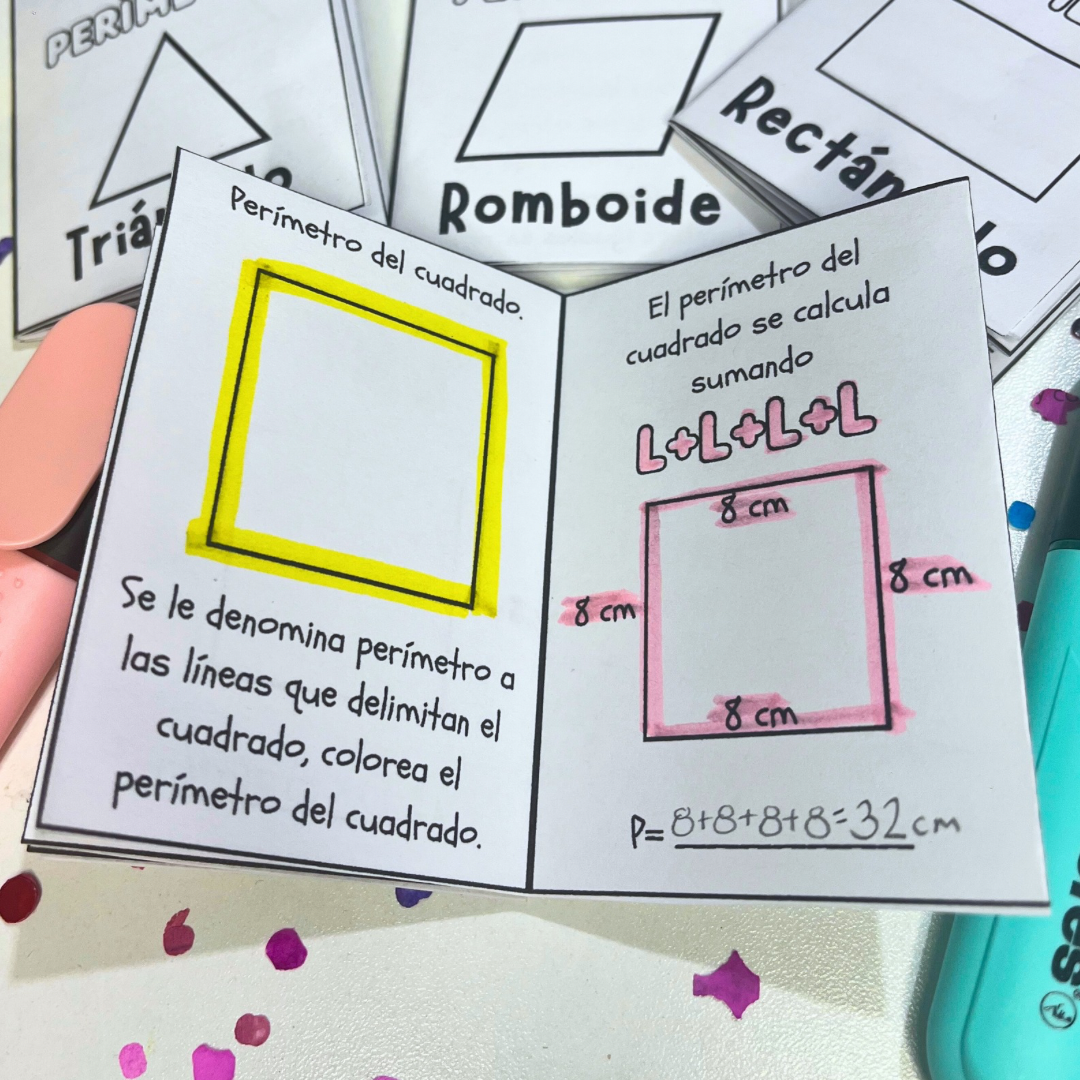 Romboide
Perímetro del cuadrado.
Se le denomina perímetro a
las líneas que delimitan el
cuadrado, colorea el
perímetro del cuadrado.
El perímetro del
cuadrado se calcula
sumando
L+L+L+L
8 cm
8 cm
8 cm
8 cm
P= 8+8+8+8=32 cm